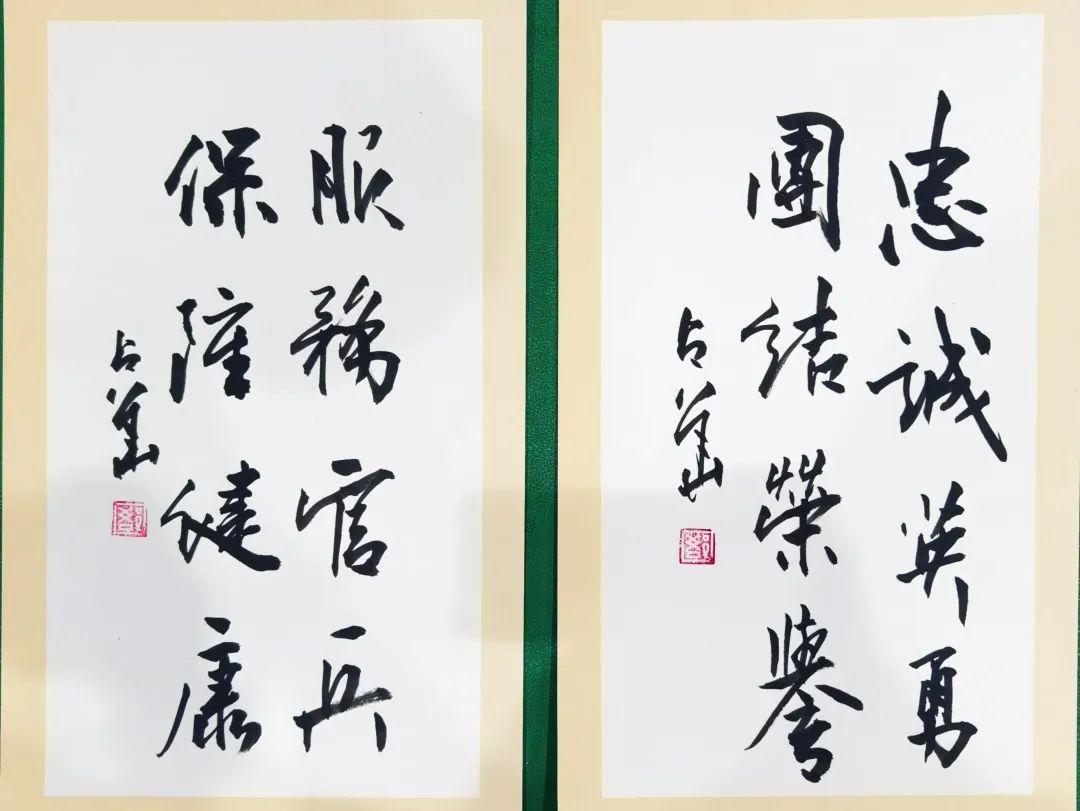 忠誠英勇
團結榮譽
占
服務官兵
保障健康
占